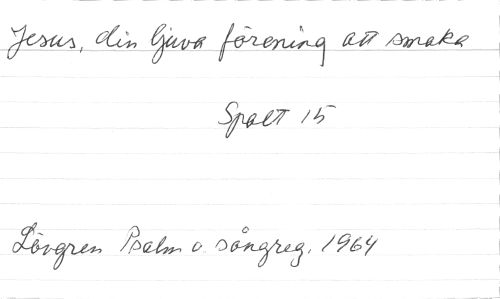 Jesus, din ljuva förening att smaka
Spalt 15
Lövgren Psalm o. sångreg. 1964